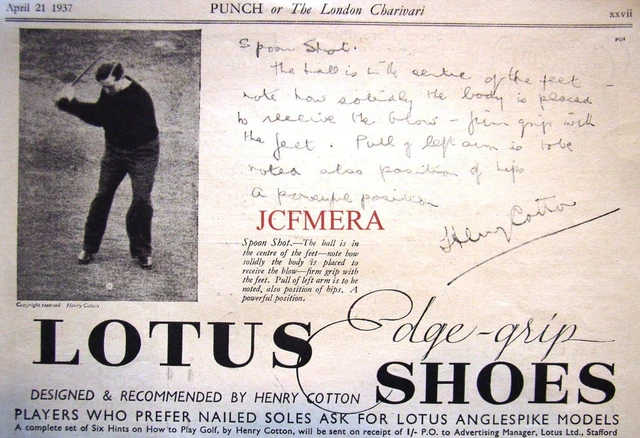 April 21 1937
PUNCH or The London Charivari
xxvii
PGA
Spoon Shot.
The ball is in the centre of the feet -
note how solidly the body is placed
to receive the blow - firm grip with
the feet. Pull of left arm is to be
noted also position of hips
A powerful position
Henry Cotton
JCFMERA
Spoon Shot.—The ball is in
the centre of the feet—note how
solidly the body is placed to
receive the blow—firm grip with
the feet. Pull of left arm is to be
noted, also position of hips. A
powerful position.
Copyright reserved Henry Cotton
LOTUS Edge-grip
SHOES
DESIGNED & RECOMMENDED BY HENRY COTTON
PLAYERS WHO PREFER NAILED SOLES ASK FOR LOTUS ANGLESPIKE MODELS
A complete set of Six Hints on How to Play Golf, by Henry Cotton, will be sent on receipt of 1/- P.O. to Advertising Manager, Lotus Ltd., Stafford